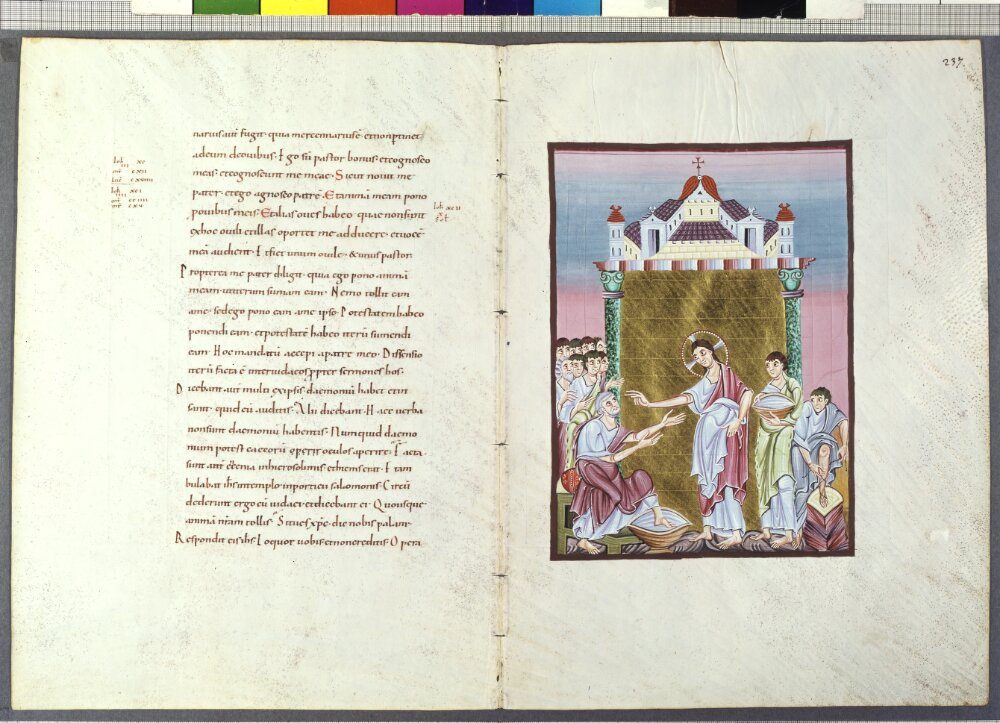 237
nariusaut fugit· quia mercennariusē· etnonptinet
adeum deouibus· Ego sū pastor bonus· etcognosco
meas· etcognoscunt me meae· Sicut nouit me
pater· etego agnosco patrē· Etanimā meam pono
pouibus meis· Etalias oues habeo· quae nonsunt
exhoc ouili· etillas oportet me adducere· etuocē
meā audient· Et fiet unum ouile· & unus pastor·
Propterea me pater diligit· quia ego pono animā
meam· utiterum sumam eam· Nemo tollit eam
ame· sedego pono eam ame ipso· Potestatem habeo
ponendi eam· etpotestatē habeo iterū sumendi
eam· Hoc mandatū accepi apatre meo· Dissensio
iterū facta ē interiudaeos ppter sermones hos·
Dicebant aut multi exipsis· daemoniū habet etin
sanit· quid eū auditis· Alii dicebant· Haec uerba
nonsunt daemoniū habentis· Numquid daemo
nium potest caecorū oculos aperire· Facta
sunt aut encenia inhierosolimis· ethiems erat· Et am
bulabat ihs intemplo inporticu salomonis· Circū
dederunt ergo eū iudaei· etdicebant ei· Quousque
animā nram tollis· Situes xpc· dic nobis palam·
Respondit eis ihs· Loquor uobis· etnoncreditis· Opera